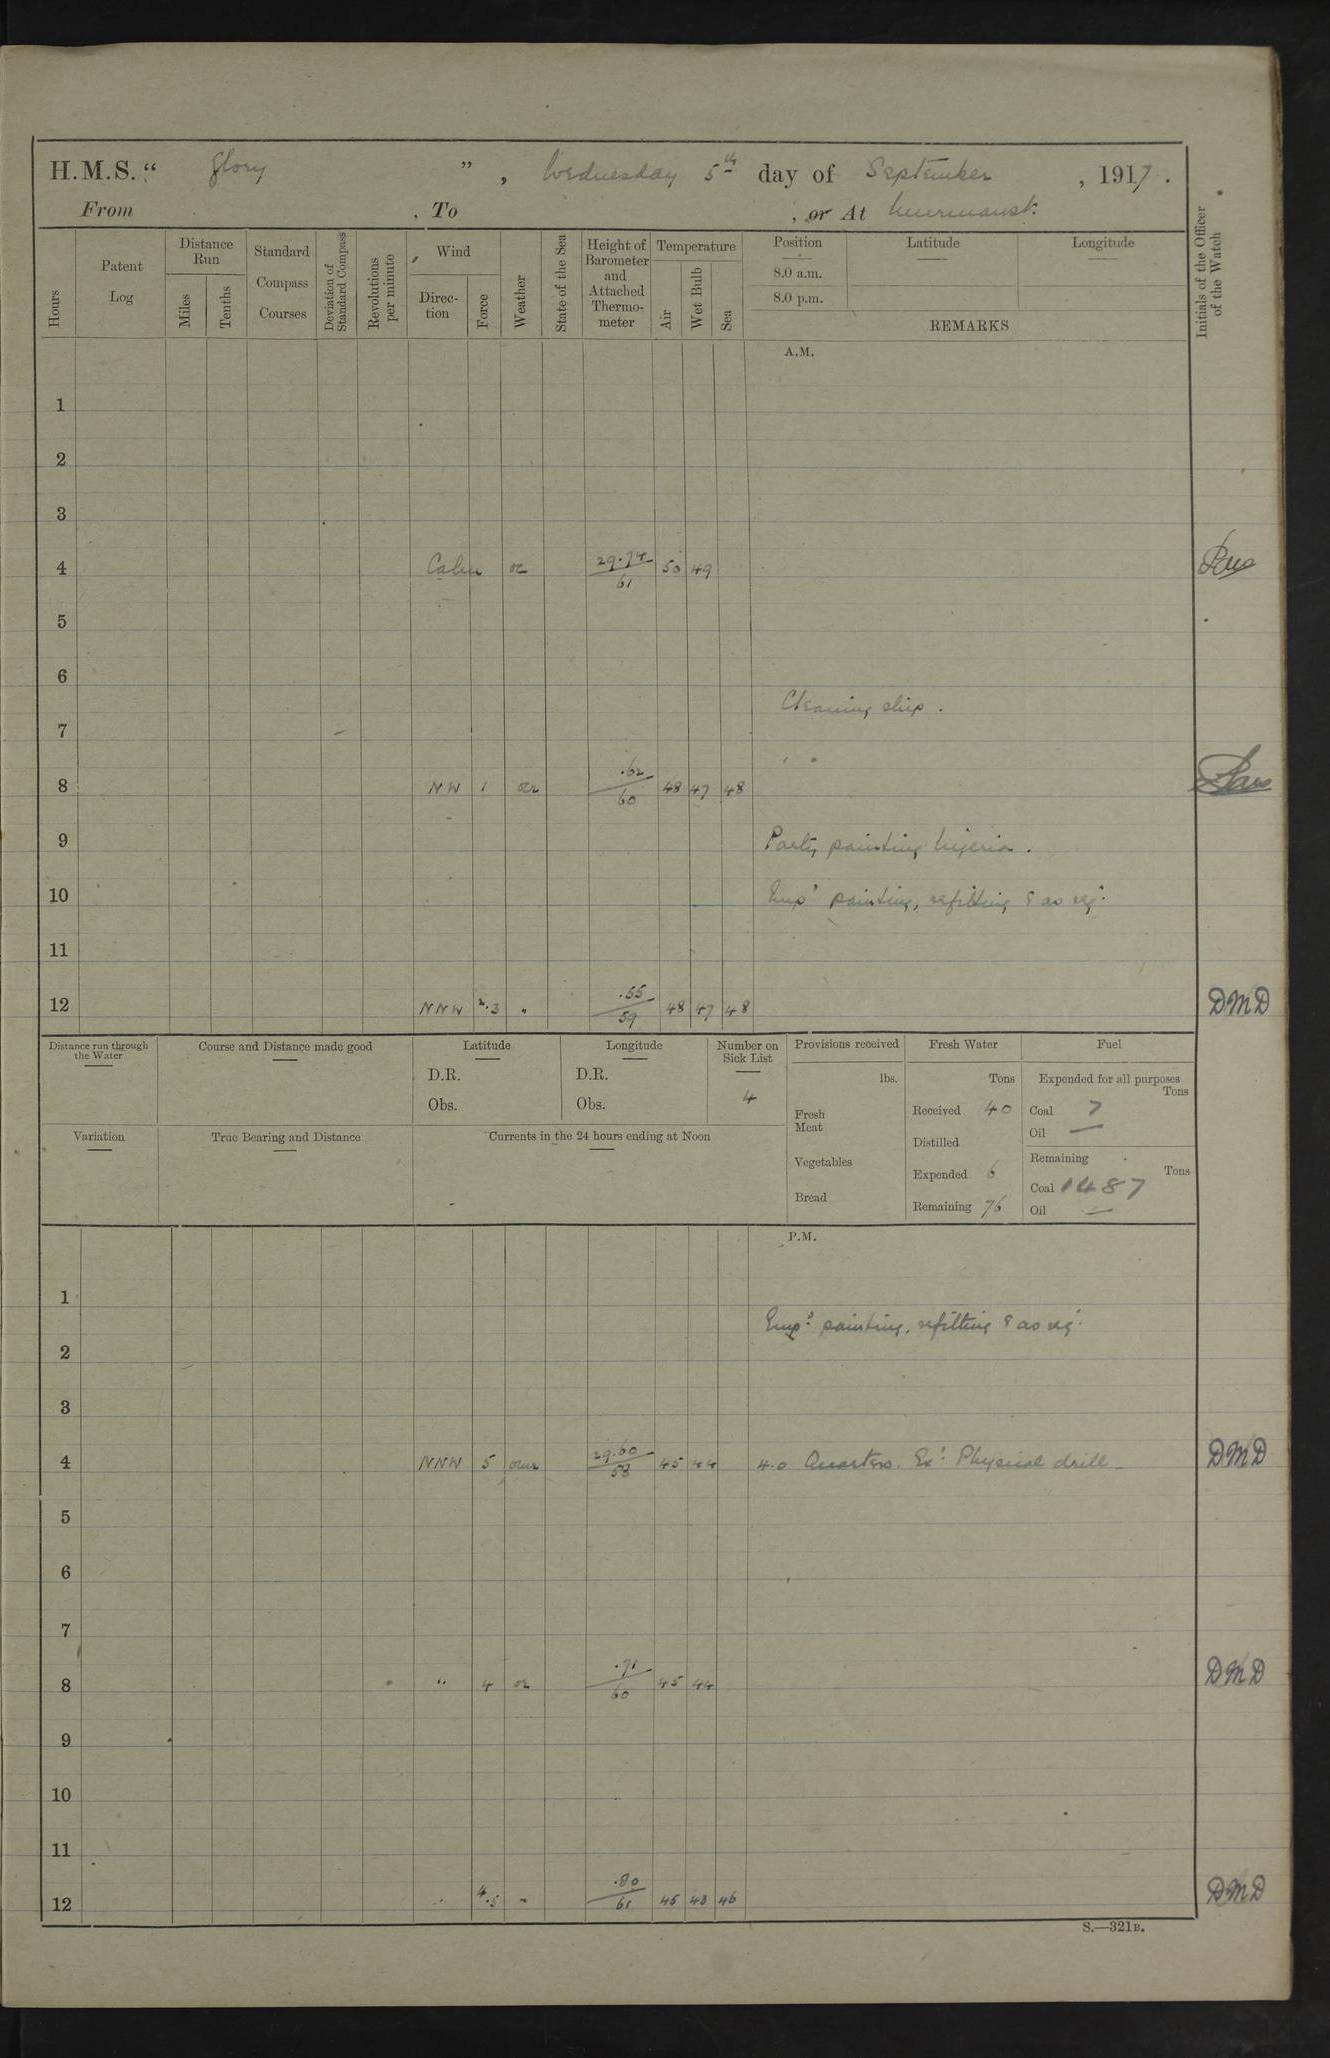 H.M.S. " Glory " , Wednesday 5th day of September , 1917 .
From , To , or At Murmansk.
Hours
Patent Log
Distance Run
Miles
Tenths
Standard Compass Courses
Deviation of Standard Compass
Revolutions per minute
Wind
Direc-tion
Force
Weather
State of the Sea
Height of Barometer and Attached Thermo-meter
Temperature
Air
Wet Bulb
Sea
Position
8.0 a.m.
8.0 p.m.
Latitude
Longitude
REMARKS
Initials of the Officer of the Watch
A.M.
1
2
3
4 Calm oc 29.74/61 50 49
5
6
Cleaning ship.
7
" "
8 NW 1 .62/60 48 47 48
9 Party painting Nigeria.
10 Emp: painting, refitting & as req:
11
12 NNW 2.3 " .55/59 48 47 48 DMD
Distance run through the Water
Course and Distance made good
Latitude
D.R.
Obs.
Longitude
D.R.
Obs.
Number on Sick List
4
Variation
True Bearing and Distance
Currents in the 24 hours ending at Noon
Provisions received
lbs.
Fresh Meat
Vegetables
Bread
Fresh Water
Tons
Received 40
Distilled
Expended 6
Remaining 76
Fuel
Expended for all purposes
Tons
Coal 7
Oil —
Remaining
Tons
Coal 1487
Oil —
P.M.
1
Emp: painting, refitting & as req:
2
3
4 NNW 5 29.60/58 45 44 4.0 Quarters. Ex: Physical drill DMD
5
6
7
8 " 4 .71/60 45 44 DMD
9
10
11
12 " 4.5 " .80/61 45 43 46 DMD
S.—321B.